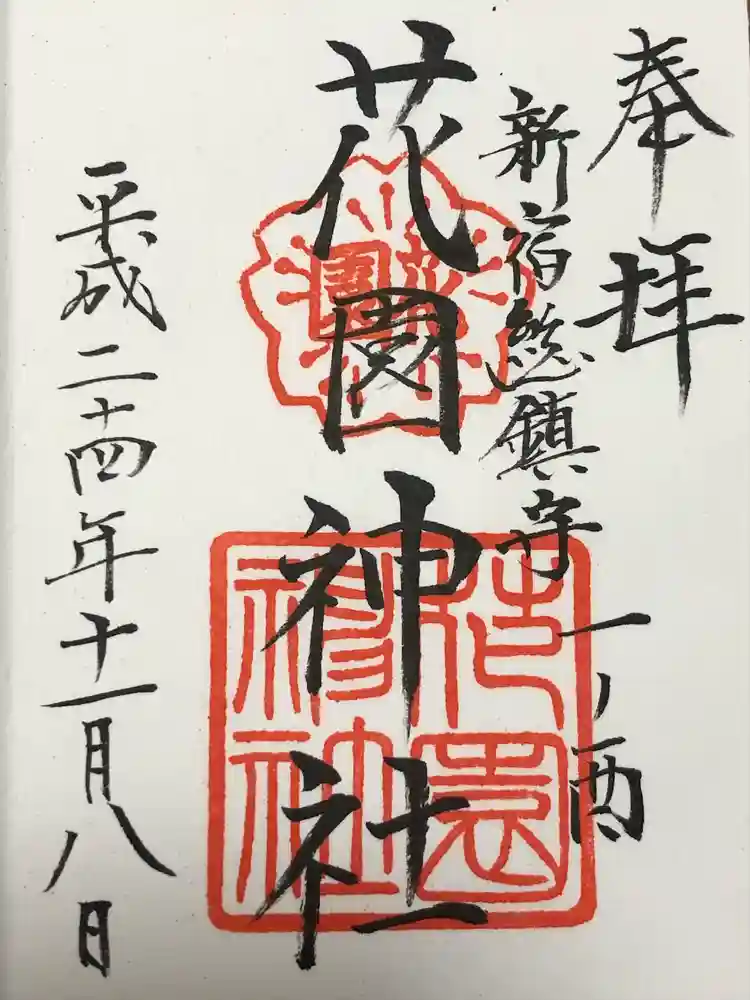 奉拝
新宿総鎮守 一ノ酉
花園神社
平成二十四年十一月八日
花園神社